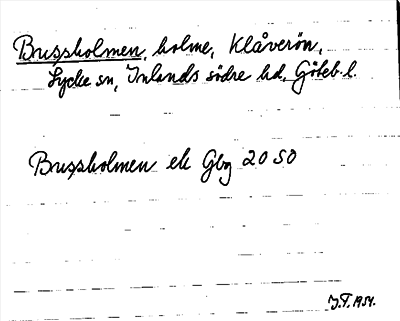 Brussholmen, holme, Klåverön,
Lycke sn, Inlands södre hd, Göteb. l.
Brussholmen ek Gbg 20 SO
J.T. 1954.